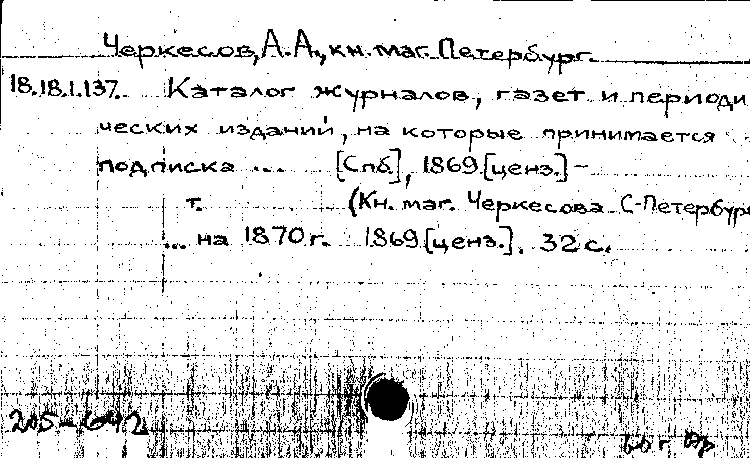 Черкесов, А.А., кн. маг. Петербург.
18.18.1.137. Каталог журналов, газет и периоди
ческих изданий, на которые принимается
подписка ... [Спб], 1869 [ценз.] –
т. (Кн. маг. Черкесова С-Петербург
... на 1870 г. 1869 [ценз.]. 32 с.
205-642